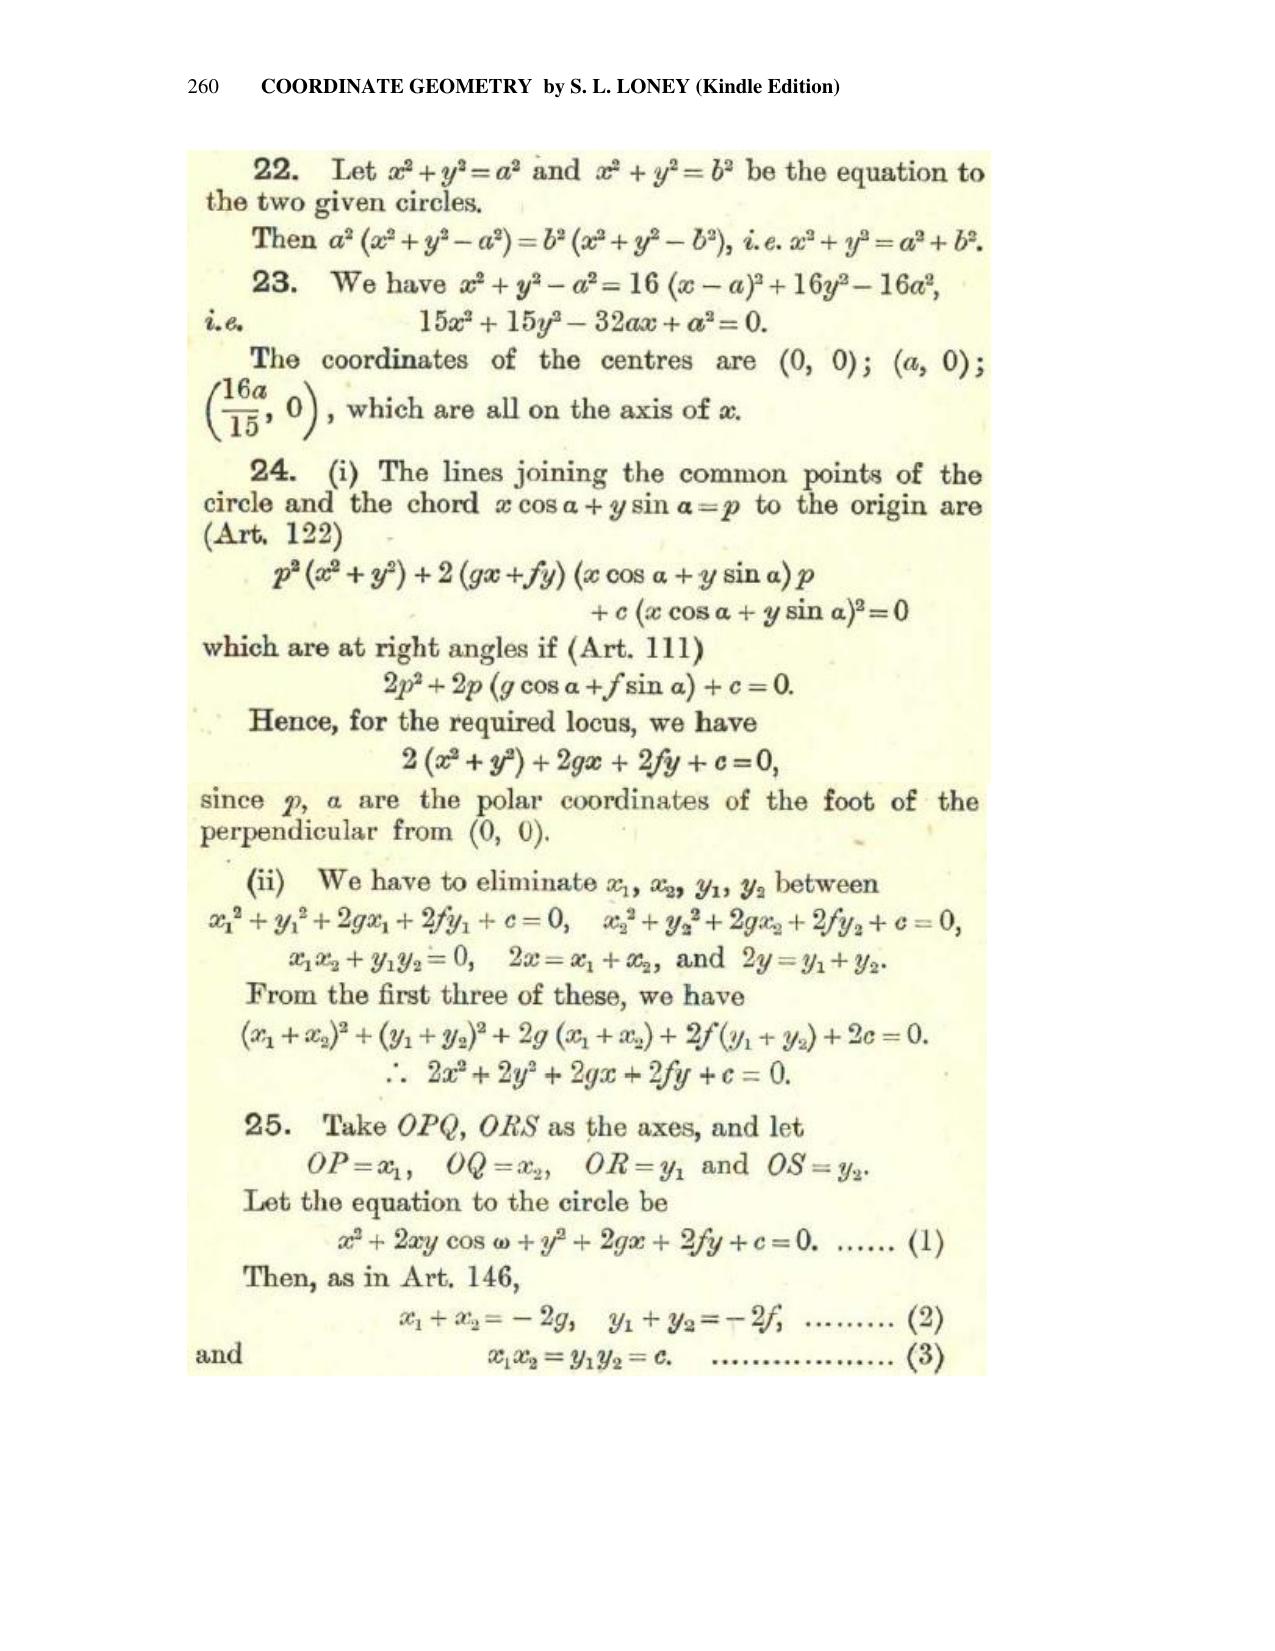 260 COORDINATE GEOMETRY by S. L. LONEY (Kindle Edition)
22. Let x² + y² = a² and x² + y² = b² be the equation to
the two given circles.
Then a² (x² + y² − a²) = b² (x² + y² − b²), i.e. x² + y² = a² + b².
23. We have x² + y² − a² = 16 (x − a)² + 16y² − 16a²,
i.e. 15x² + 15y² − 32ax + a² = 0.
The coordinates of the centres are (0, 0); (a, 0);
(16a/15, 0), which are all on the axis of x.
24. (i) The lines joining the common points of the
circle and the chord x cos α + y sin α = p to the origin are
(Art. 122)
p² (x² + y²) + 2 (gx + fy) (x cos α + y sin α) p
+ c (x cos α + y sin α)² = 0
which are at right angles if (Art. 111)
2p² + 2p (g cos α + f sin α) + c = 0.
Hence, for the required locus, we have
2 (x² + y²) + 2gx + 2fy + c = 0,
since p, α are the polar coordinates of the foot of the
perpendicular from (0, 0).
(ii) We have to eliminate x₁, x₂, y₁, y₂ between
x₁² + y₁² + 2gx₁ + 2fy₁ + c = 0, x₂² + y₂² + 2gx₂ + 2fy₂ + c = 0,
x₁x₂ + y₁y₂ = 0, 2x = x₁ + x₂, and 2y = y₁ + y₂.
From the first three of these, we have
(x₁ + x₂)² + (y₁ + y₂)² + 2g (x₁ + x₂) + 2f (y₁ + y₂) + 2c = 0.
∴ 2x² + 2y² + 2gx + 2fy + c = 0.
25. Take OPQ, ORS as the axes, and let
OP = x₁, OQ = x₂, OR = y₁ and OS = y₂.
Let the equation to the circle be
x² + 2xy cos ω + y² + 2gx + 2fy + c = 0. ...... (1)
Then, as in Art. 146,
x₁ + x₂ = − 2g, y₁ + y₂ = − 2f, ......... (2)
and x₁x₂ = y₁y₂ = c. .................. (3)